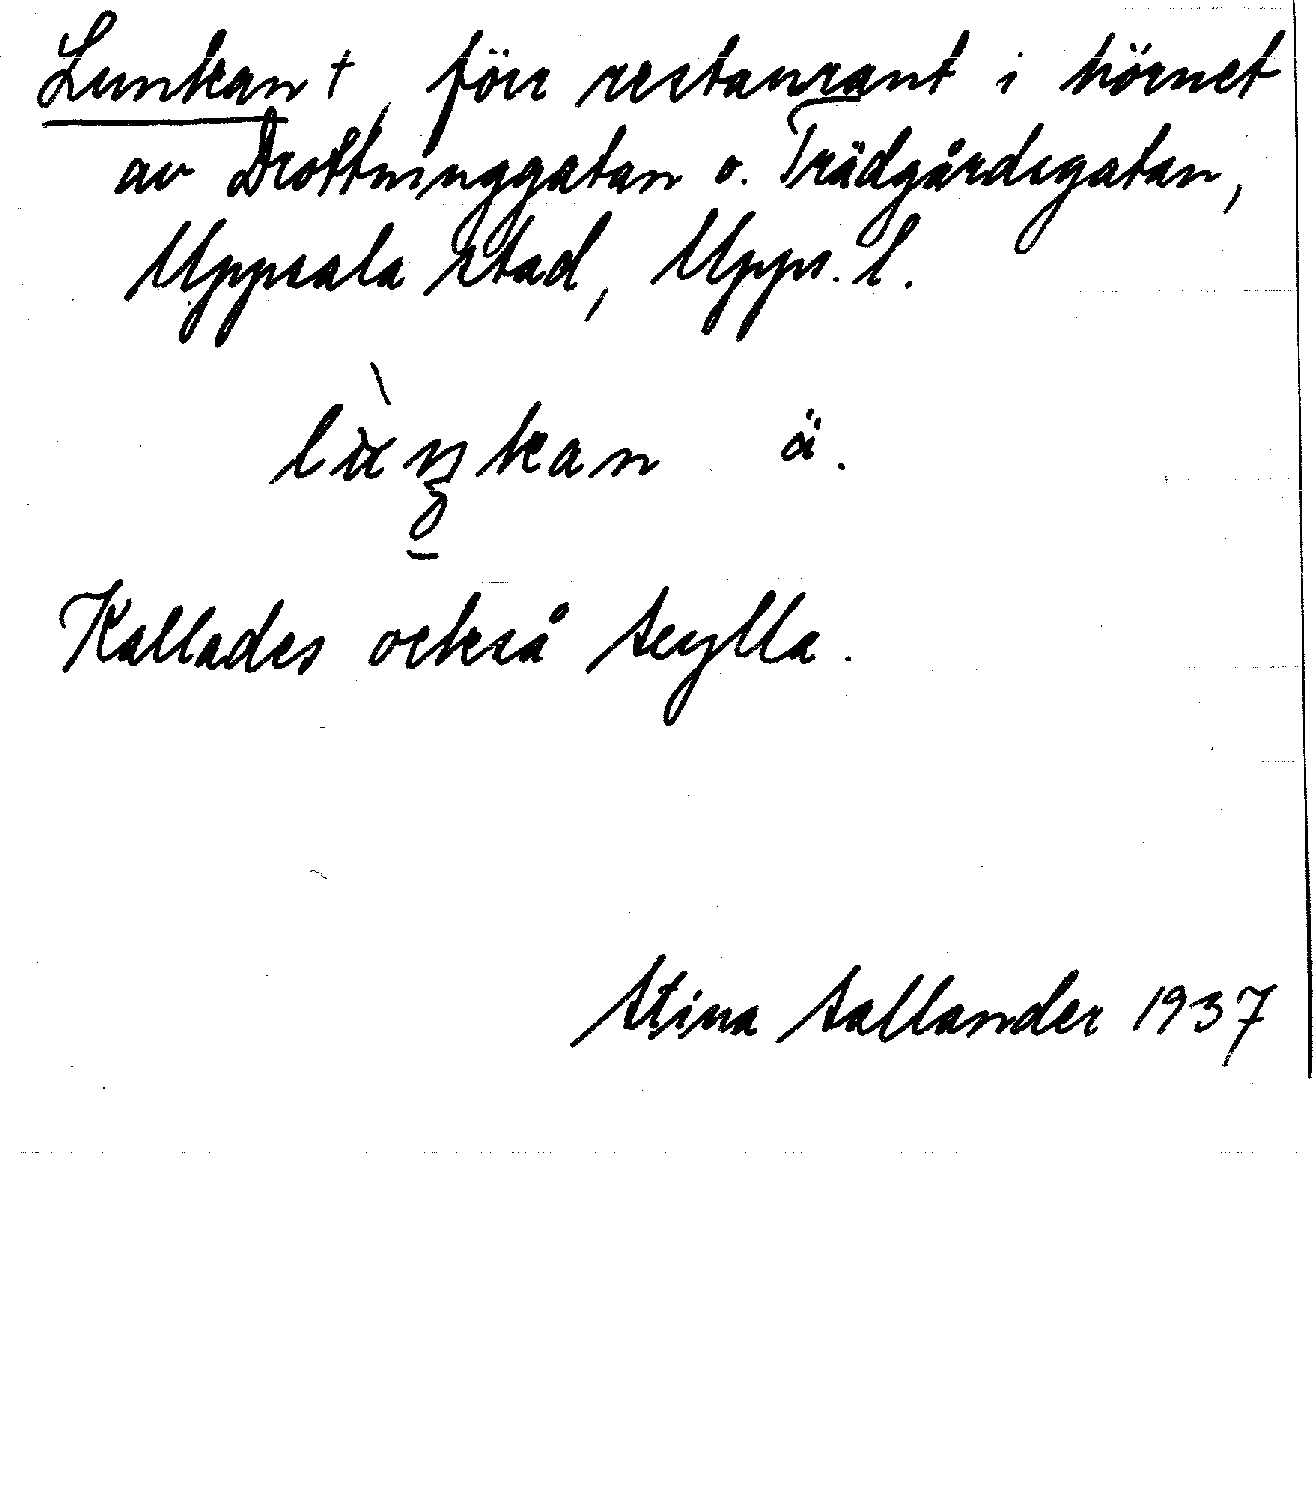 Lunkan †, förr restaurant i hörnet
av Drottninggatan o. Trädgårdsgatan,
Uppsala stad, Upps. l.
ä.
Kallades också Scylla.
Stina Sallander 1937